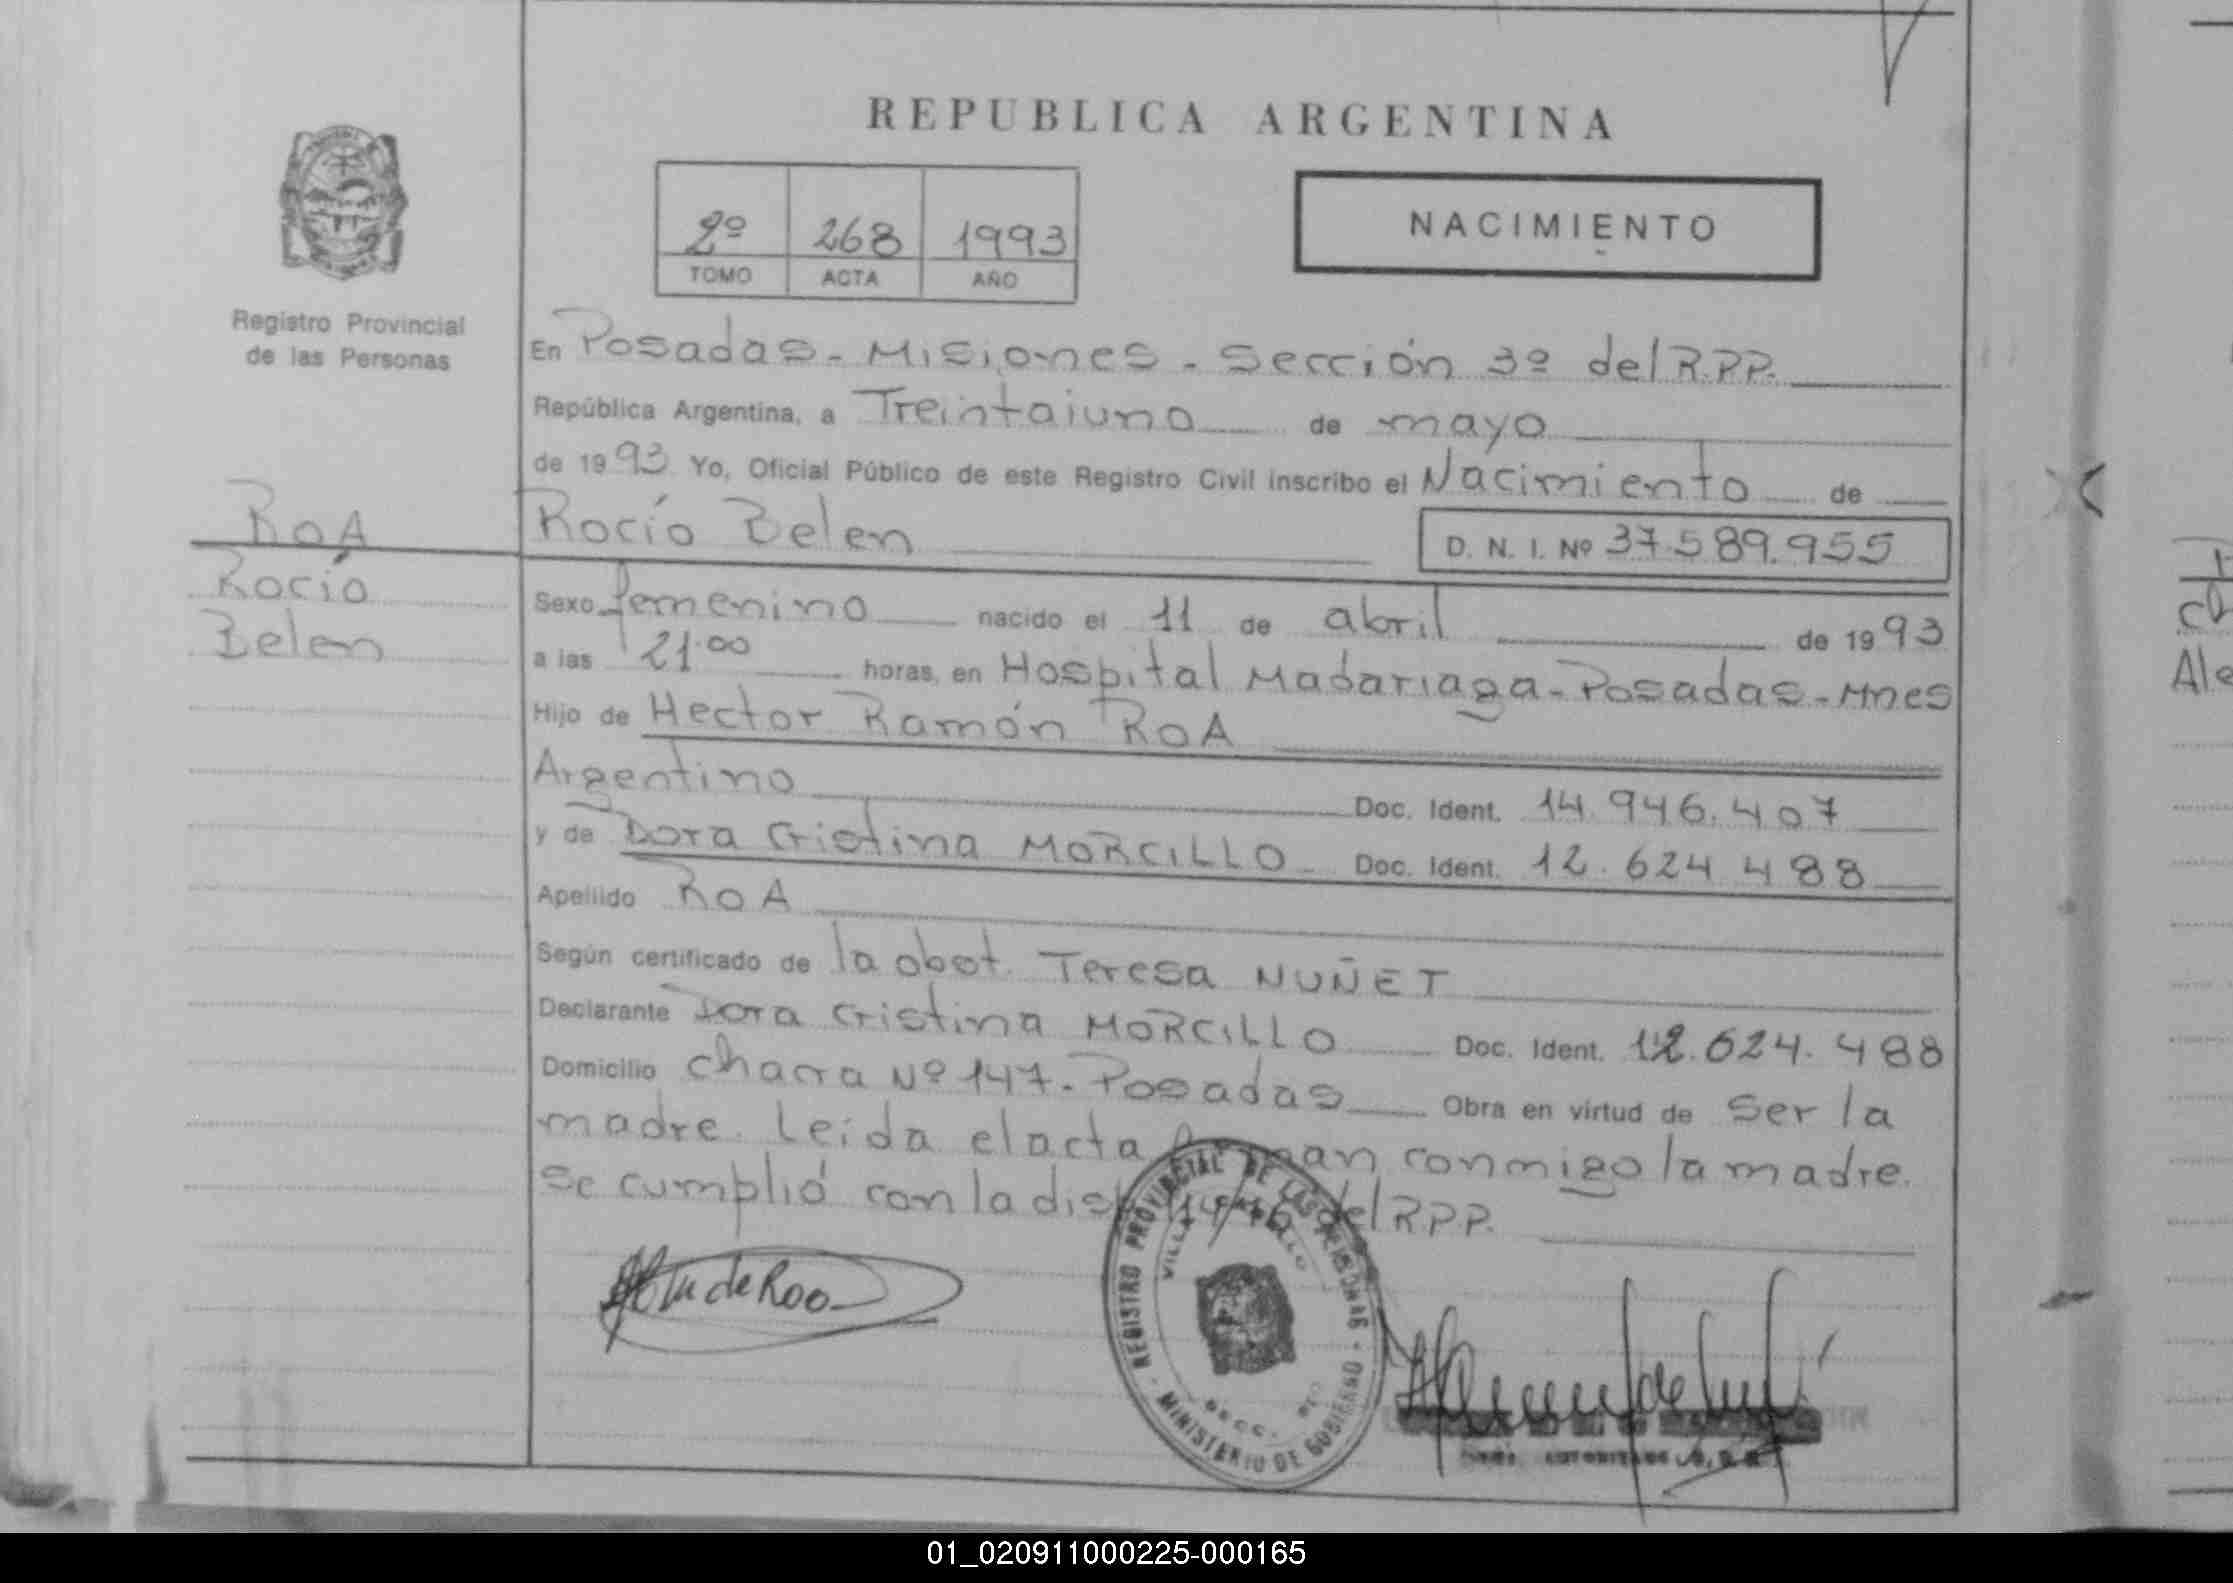 REPUBLICA ARGENTINA
2º 268 1993
TOMO ACTA AÑO
NACIMIENTO
Registro Provincial
de las Personas
En Posadas - Misiones - Sección 3º del R.P.P.
República Argentina, a Treintaiuno de mayo
de 1993 Yo, Oficial Público de este Registro Civil inscribo el Nacimiento de
ROA
Rocío
Belen
Rocío Belen D. N. I. Nº 37.589.955
Sexo femenino nacido el 11 de abril de 1993
a las 21.00 horas, en Hospital Madariaga - Posadas - Mnes
Hijo de Hector Ramón ROA
Argentino Doc. Ident. 14.946.407
y de Dora Cristina MORCILLO Doc. Ident. 12.624.488
Apellido ROA
Según certificado de la obst. Teresa NUÑET
Declarante Dora Cristina MORCILLO Doc. Ident. 12.624.488
Domicilio Chacra Nº 147 - Posadas Obra en virtud de ser la
madre. Leída el acta firman conmigo la madre.
Se cumplió con la disp. del R.P.P.
REGISTRO PROVINCIAL DE LAS PERSONAS - MINISTERIO DE GOBIERNO -
de Roa
Ale
01_020911000225-000165